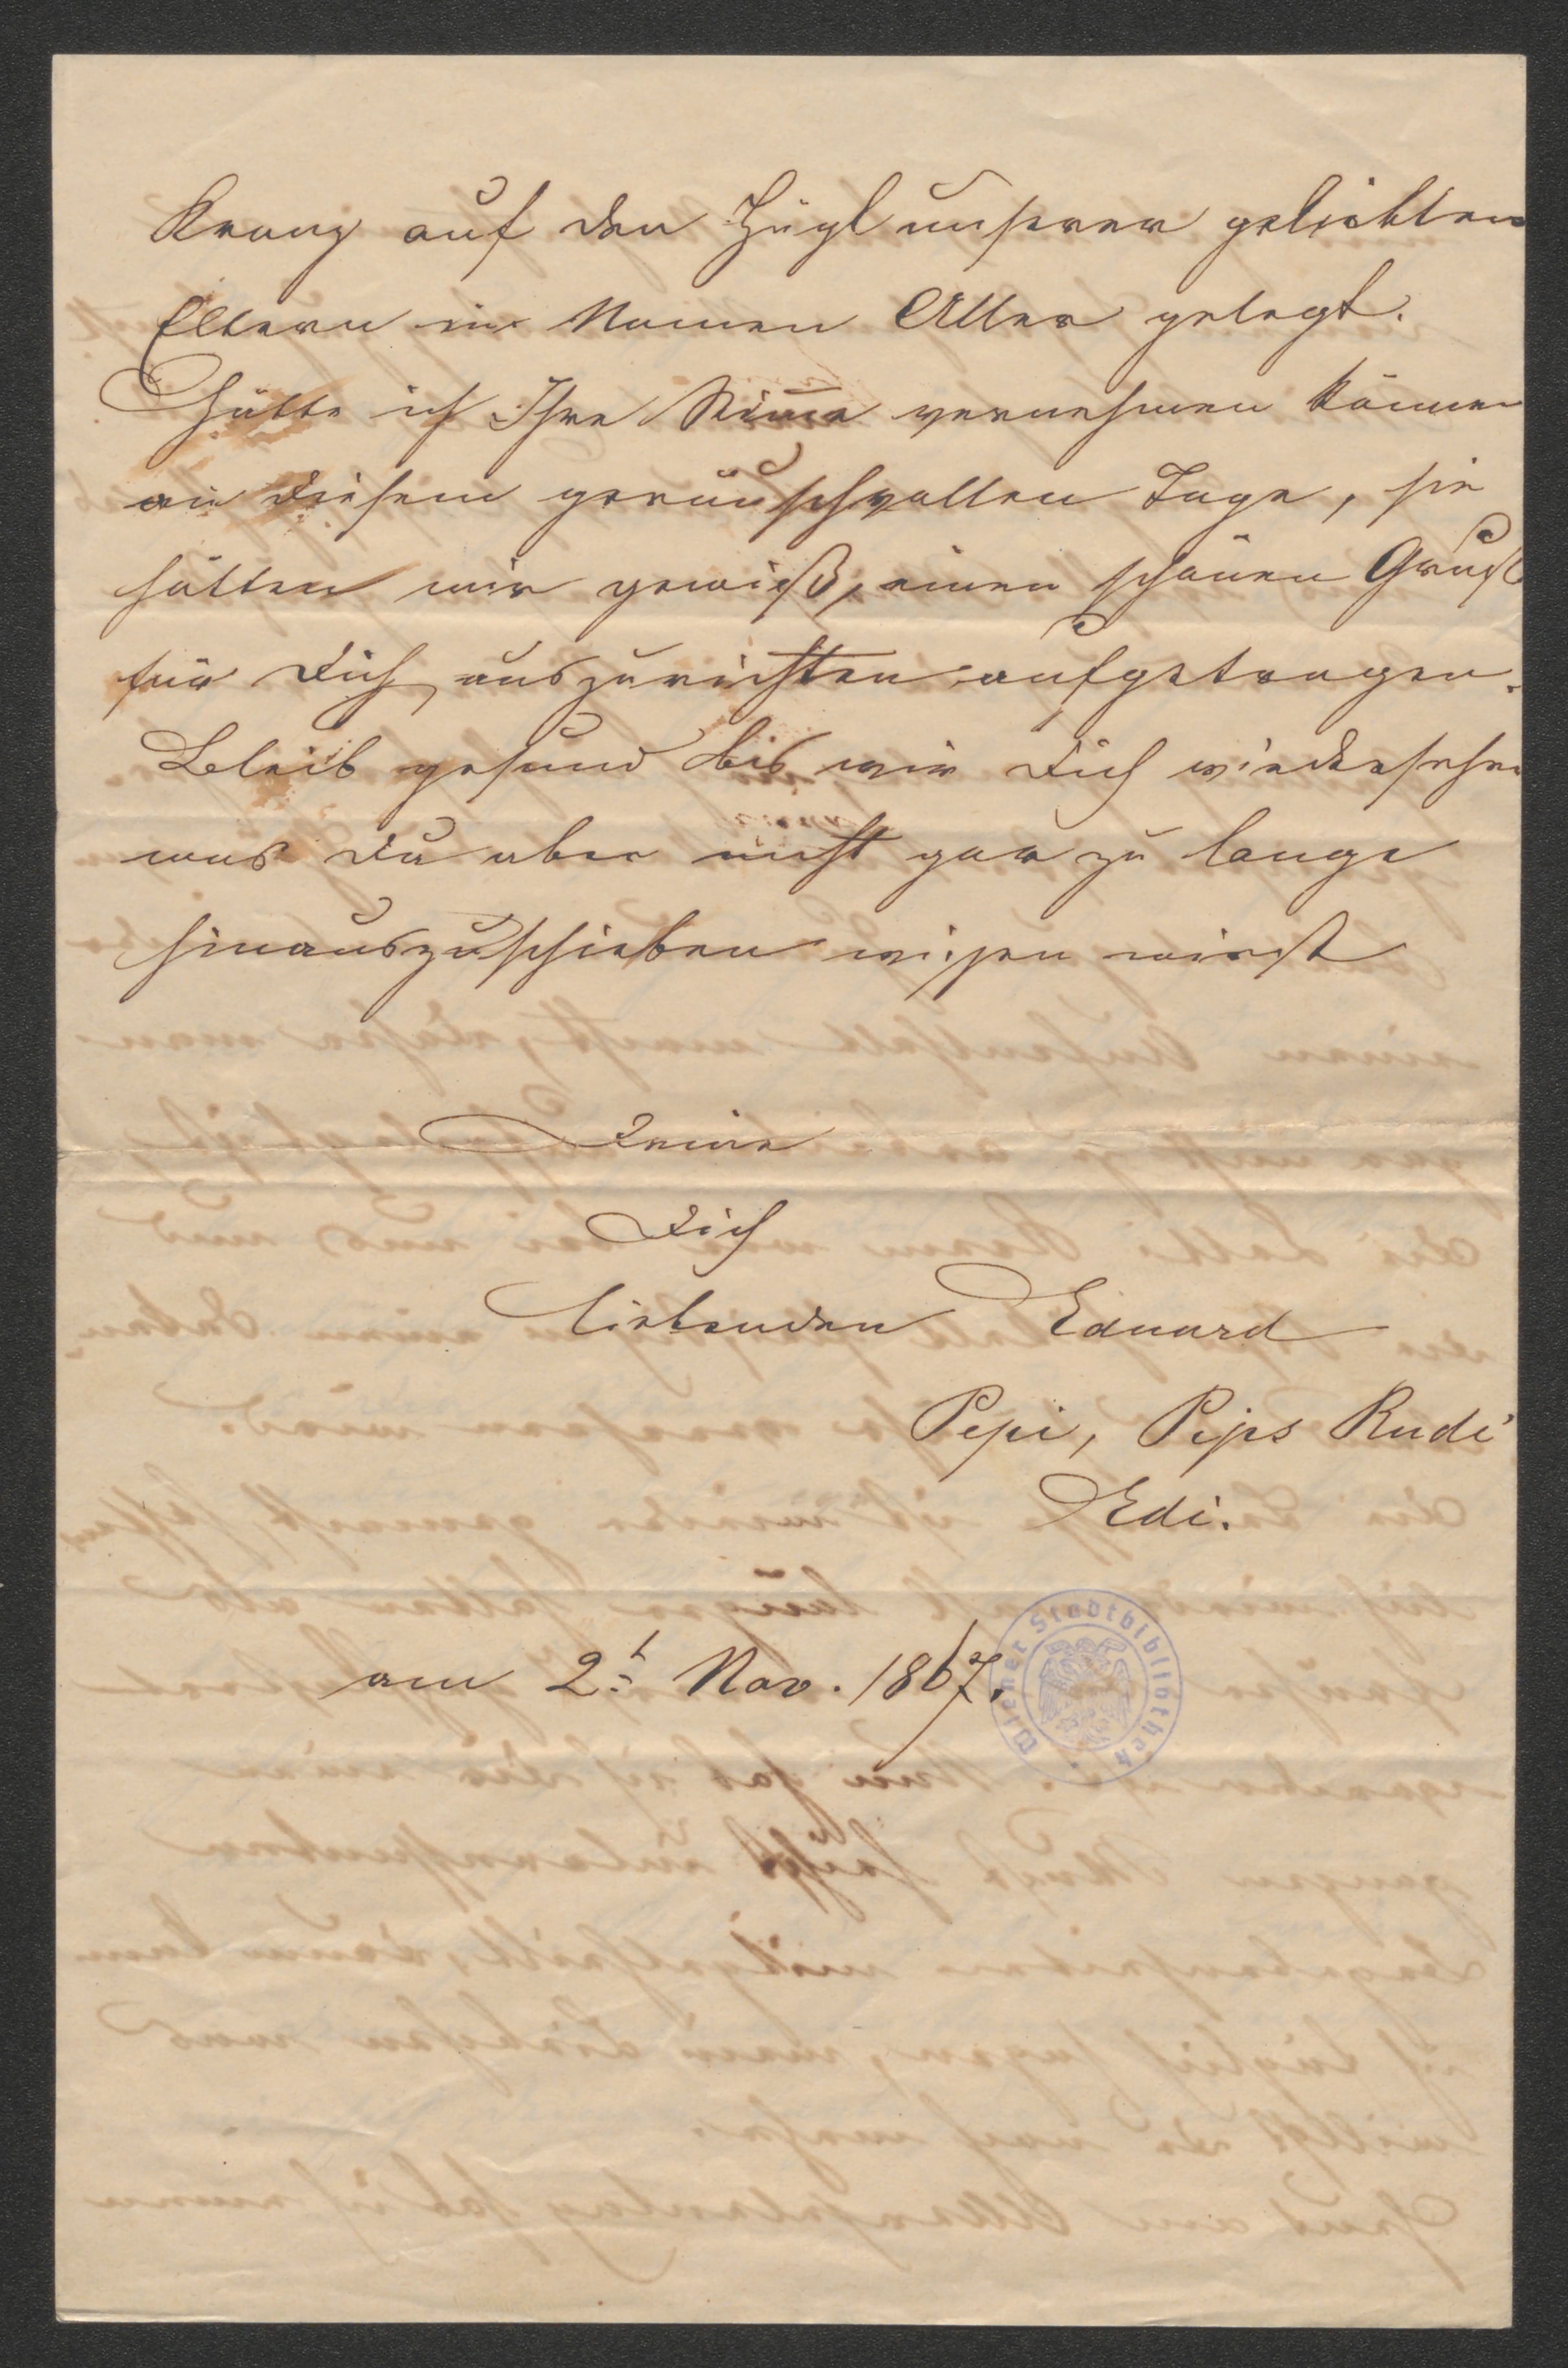 Kranz auf den Hügl unserer geliebten
Eltern im Namen Aller gelegt.
Hätte ich Ihre Stim̅e vernehmen können
an diesem geräuschvollen Tage, sie
hätten mir gewiß, einen schönen Gruß
für Dich, auszurichten aufgetragen.
Bleib gesund bis wir Dich wiedersehen
was Du aber nicht gar zu lange
hinauszuschieben wißen wirst
Deine
Dich
liebenden Eduard
Pepi, Peps Rudi
Edi.
am 2t Nov. 1867.
Wiener Stadtbibliothek